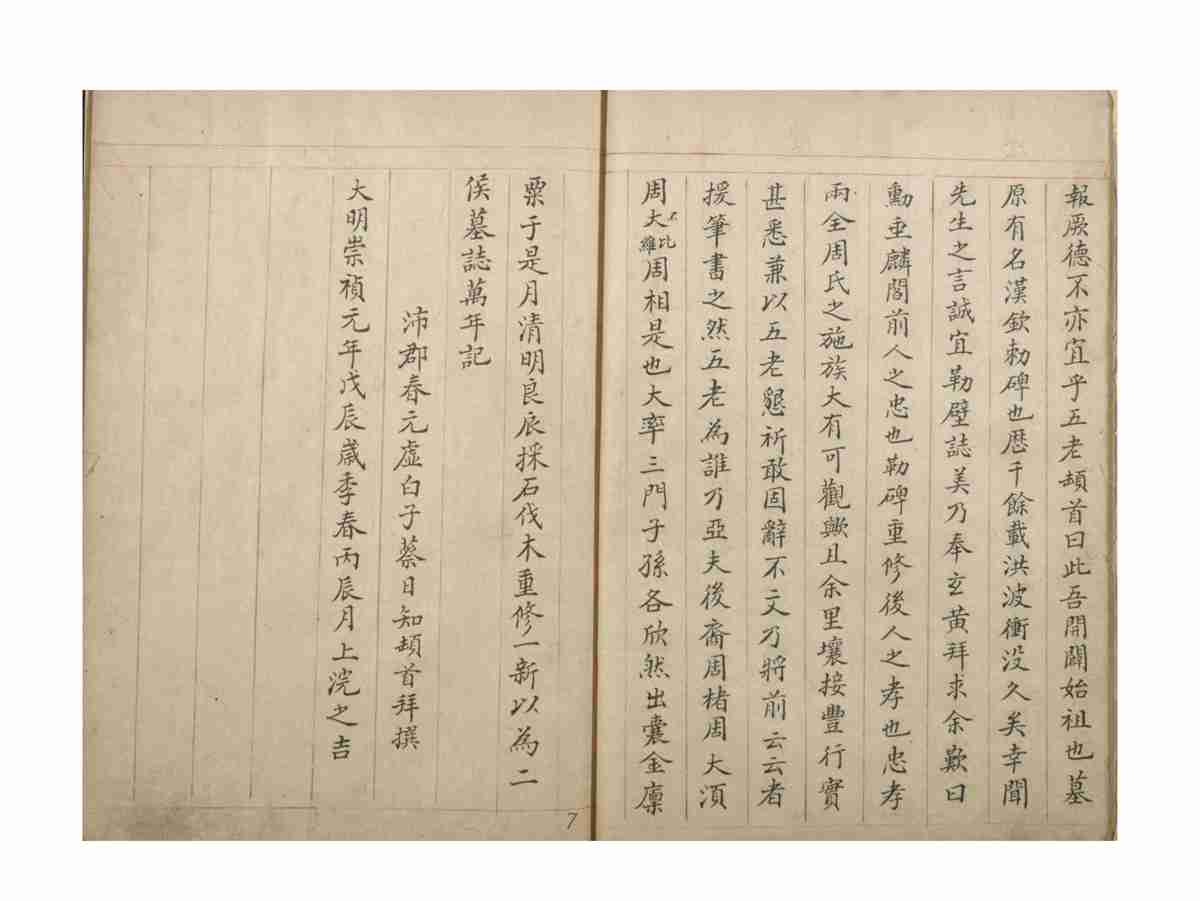 報厥德不亦宜乎五老頓首曰此吾開闢始祖也墓
原有名漢欽勅碑也歷千餘載洪波衝没久矣幸聞
先生之言誠宜勒壁誌美乃奉玄黃拜求余歎曰
勳垂麟閣前人之忠也勒碑重修後人之孝也忠孝
兩全周氏之施族大有可觀歟且余里壤接豐行實
甚悉兼以五老懇祈敢固辭不文乃將前云云者
援筆書之然五老為誰乃亞夫後裔周楮周大湏
周大雍周相是也大率三門子孫各欣然出囊金廪
粟于是月清明良辰採石伐木重修一新以為二
侯墓誌萬年記
沛郡春元虛白子蔡日知頓首拜撰
大明崇禎元年戊辰歲季春丙辰月上浣之吉
7